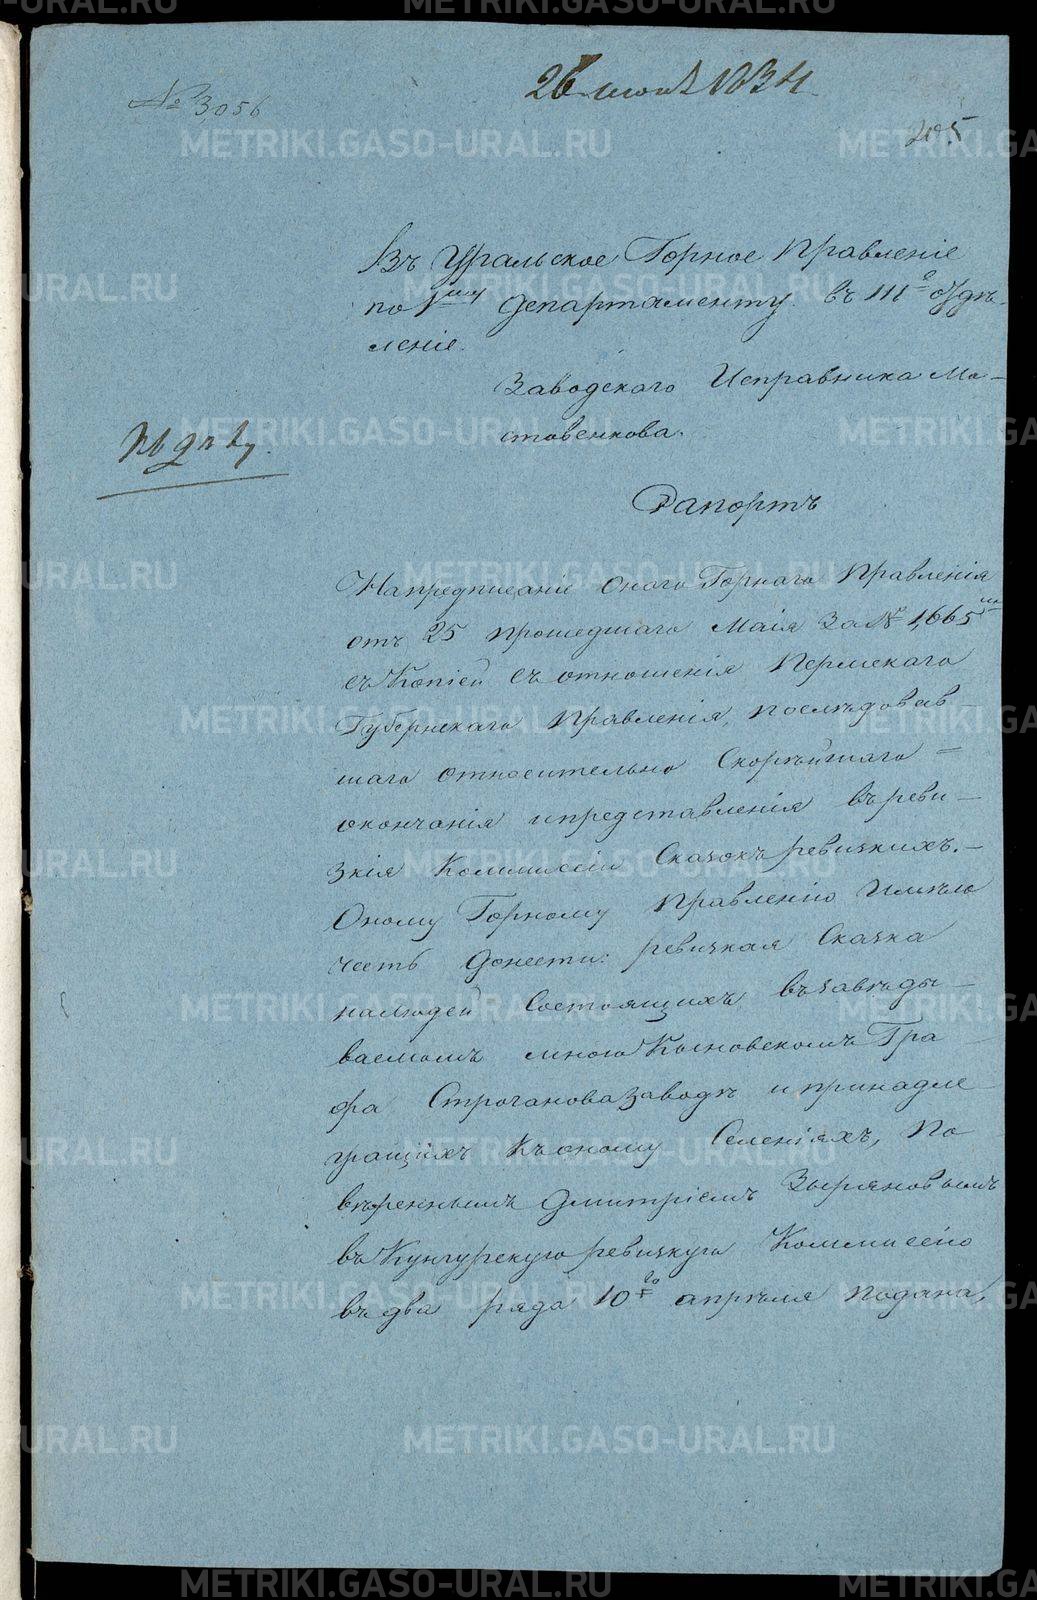 № 3,056
26 июня 1834
205
Въ Уральское Горное Правленіе
по 1му Департаменту въ III е отдѣ-
леніе.
Заводскаго Исправника Мо-
стовенкова.
Къ дѣлу.
Рапортъ
Напредписаніе онаго Горнаго Правленія
отъ 25 прошедшаго Маія За № 1,665м
съ Копіей съ отношенія Пермскаго
Губернскаго Правленія, послѣдовав-
шаго относительно Скорѣйшаго =
окончанія ипредставленія въ реви-
зкія Коммисіи Сказокъ ревизкихъ.-
Оному Горному Правленію Имѣю
честь Донести: ревизкая Сказка
налюдей Состоящихъ възавѣды-
ваемомъ мною Кыновскомъ Гра
фа Строганова заводѣ и принадле
жащихъ Къоному Селеніяхъ, По
вѣреннымъ Дмитріемъ Зыряновымъ
въ Кунгурскую ревизкую Коммисію
въ два ряда 10го апрѣля подана,
METRIKI.GASO-URAL.RU